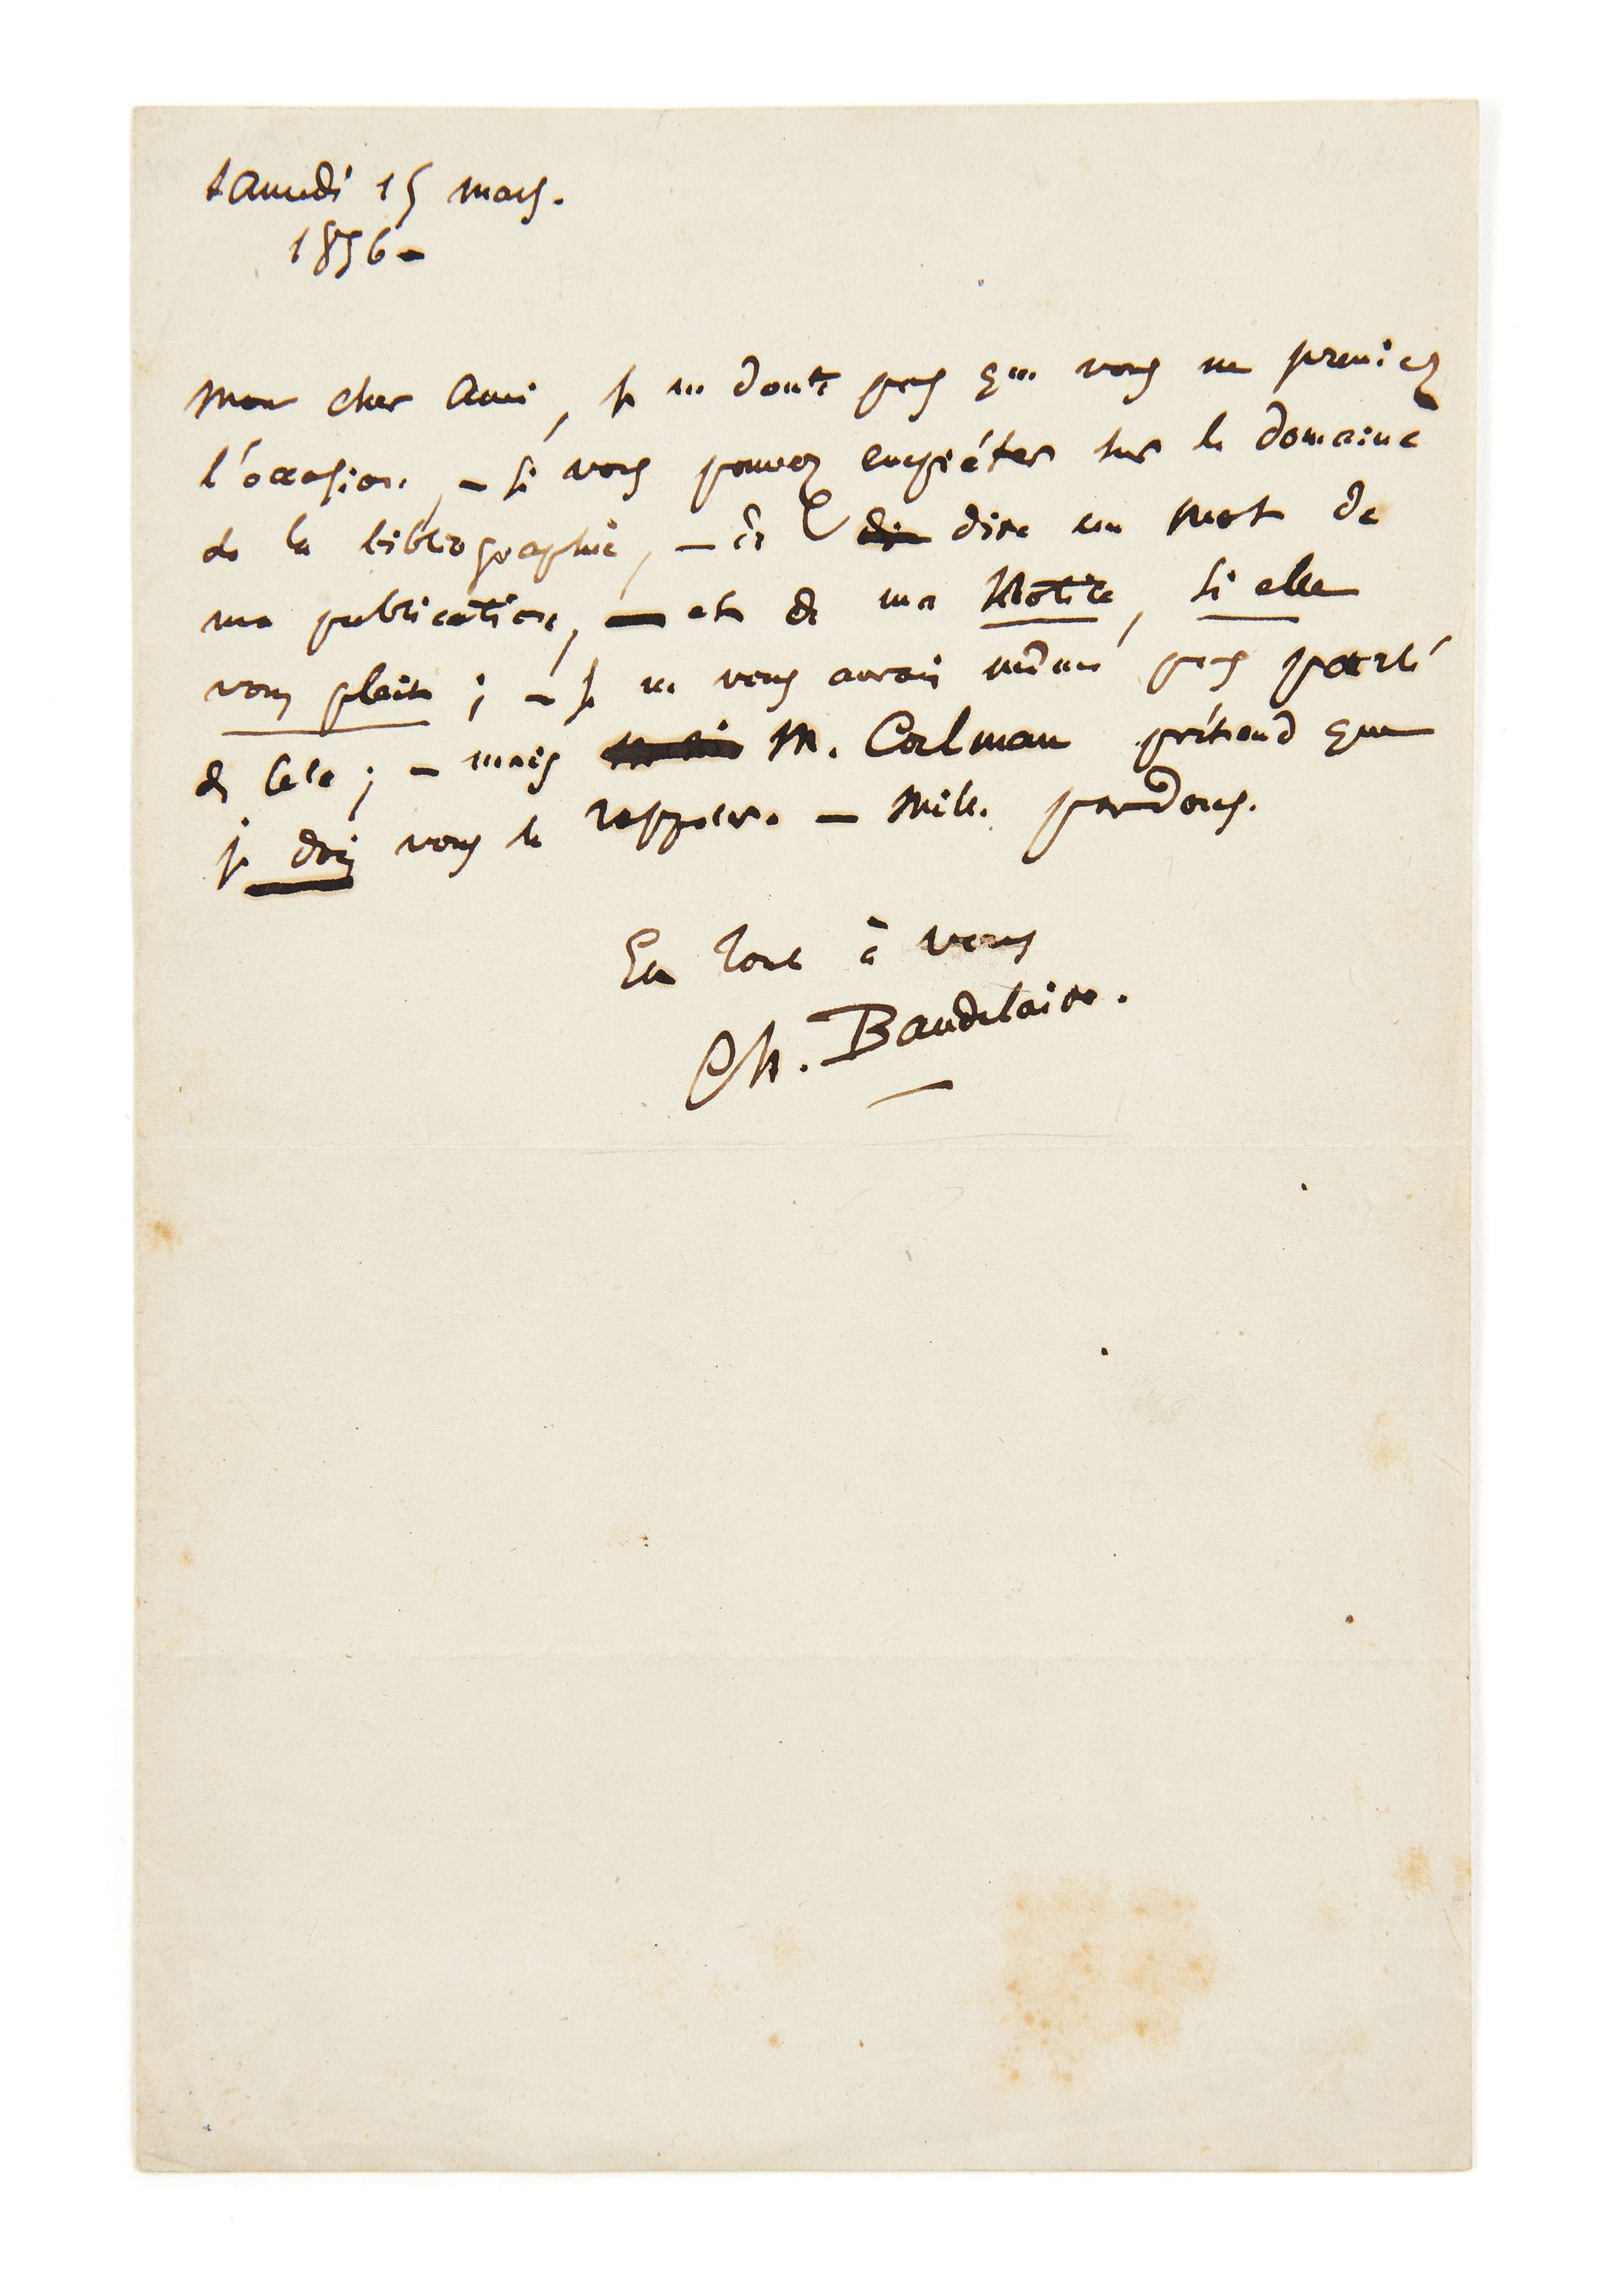 Samedi 15 mars.
1856 —
Mon cher Ami, je ne doute pas que vous ne preniez
l'occasion, — si vous pouvez empiéter sur le domaine
de la bibliographie, — de dire un mot de
ma publication, — et de ma Notice, si elle
vous plait ; — je ne vous aurais même pas parlé
de cela ; — mais M. Calman prétend que
je dois vous le rappeler. — Mille pardons.
En tout à vous
Ch. Baudelaire.